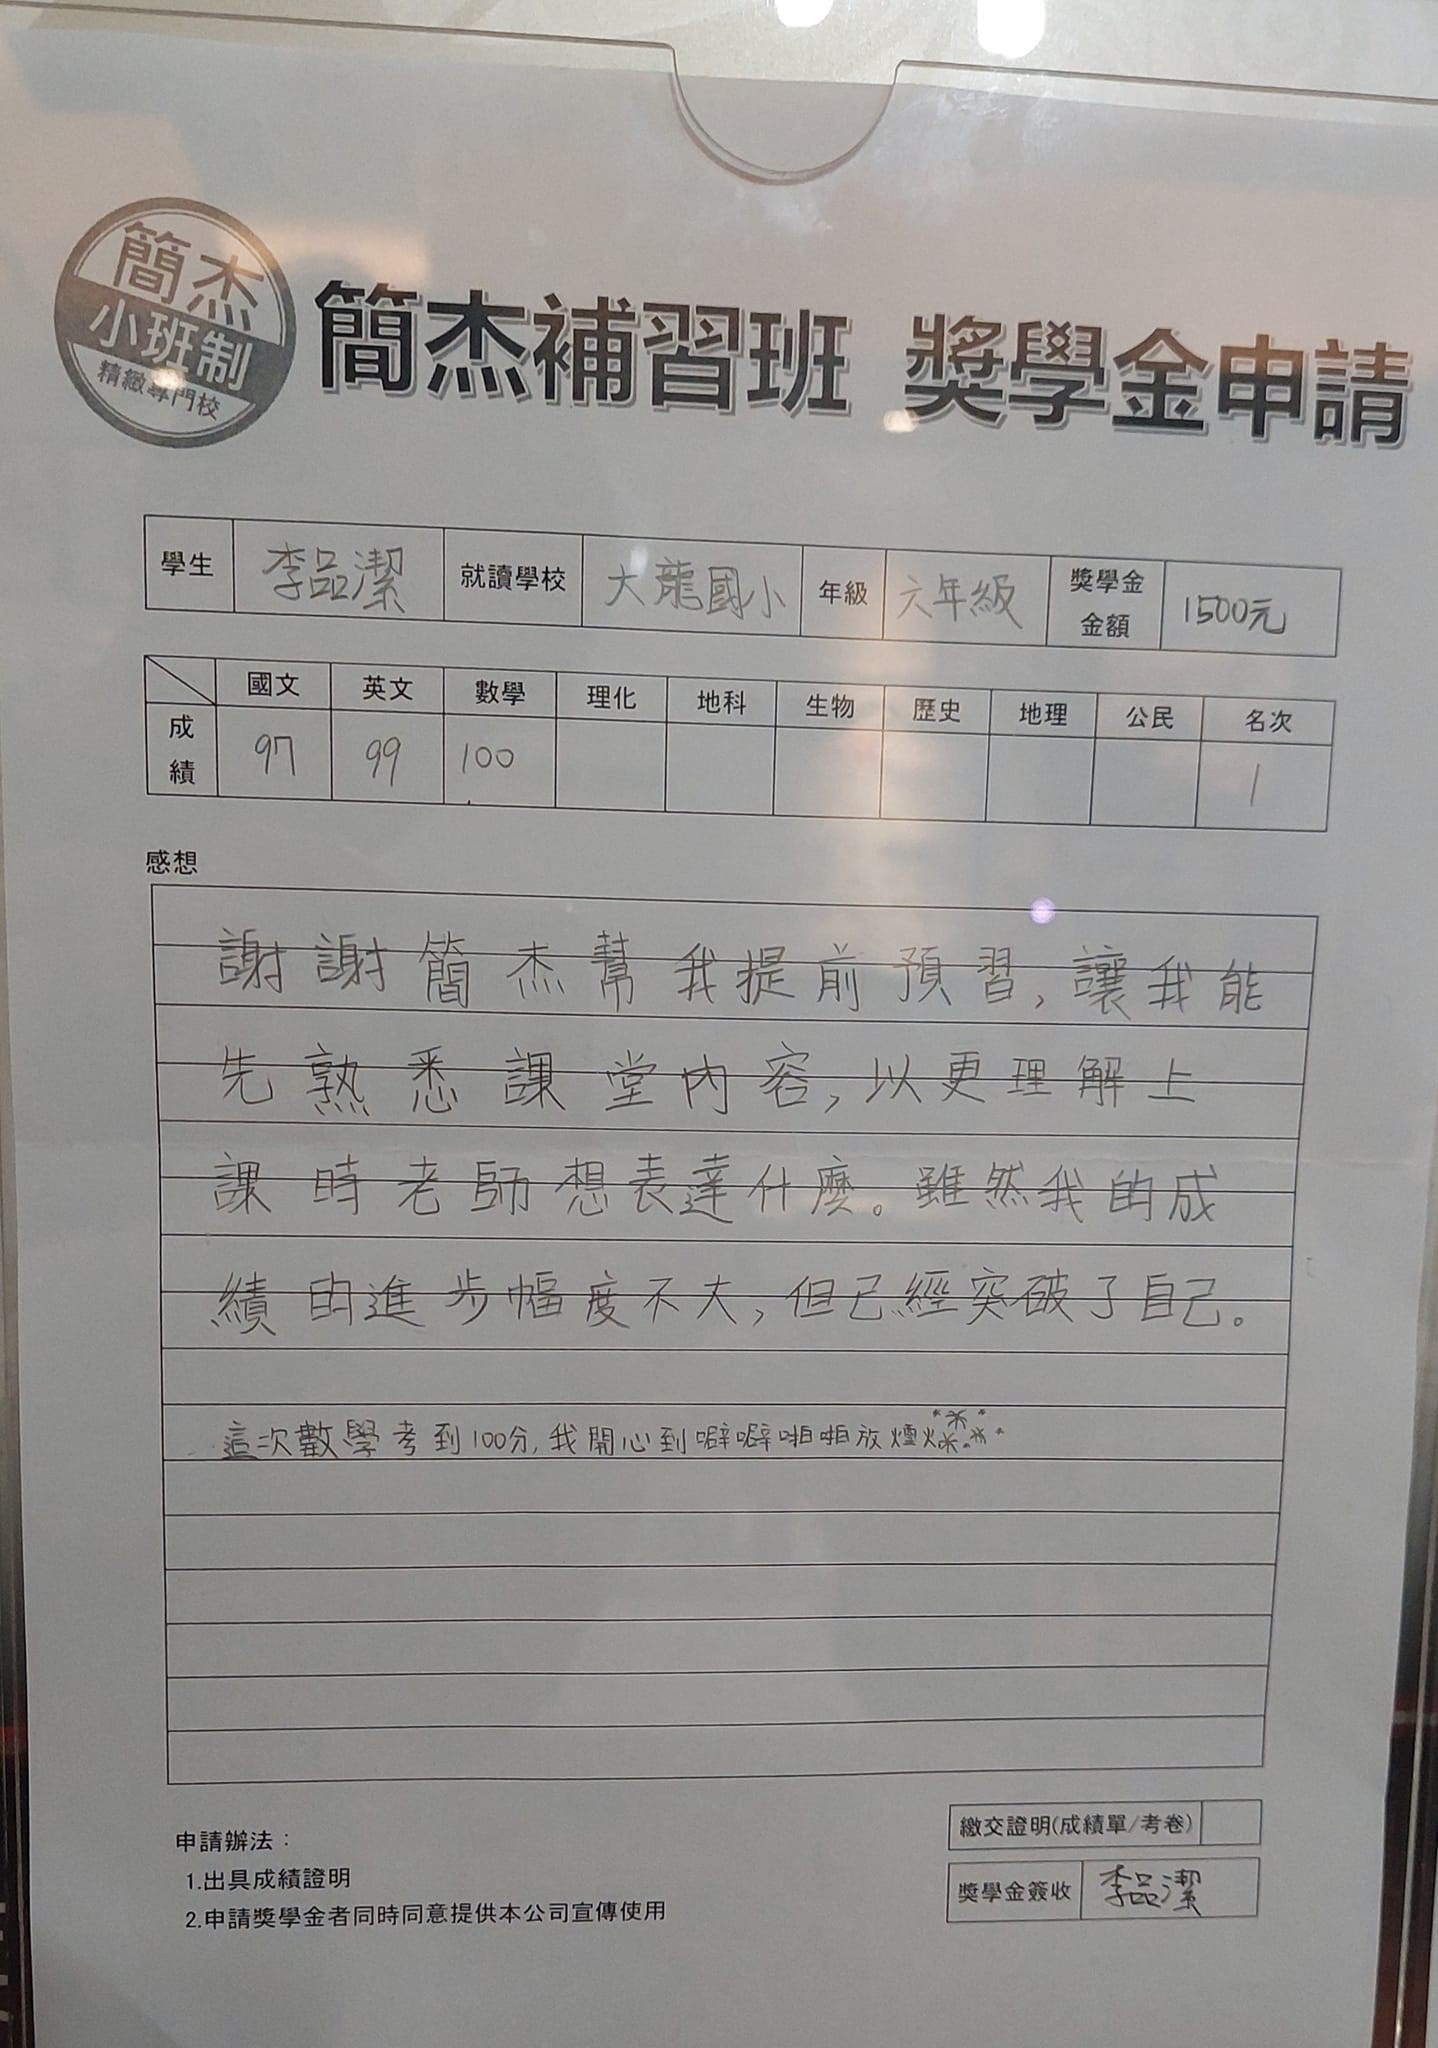 簡杰
小班制
精緻專門校
簡杰補習班 獎學金申請
學生 李品潔 就讀學校 大龍國小 年級 六年級 獎學金金額 1500元
國文 英文 數學 理化 地科 生物 歷史 地理 公民 名次
成績 97 99 100 1
感想
謝謝簡杰幫我提前預習,讓我能
先熟悉課堂內容,以更理解上
課時老師想表達什麼。雖然我的成
績的進步幅度不大,但已經突破了自己。
這次數學考到100分,我開心到噼噼啪啪放煙火
申請辦法：
1.出具成績證明
2.申請獎學金者同時同意提供本公司宣傳使用
繳交證明(成績單/考卷)
獎學金簽收 李品潔